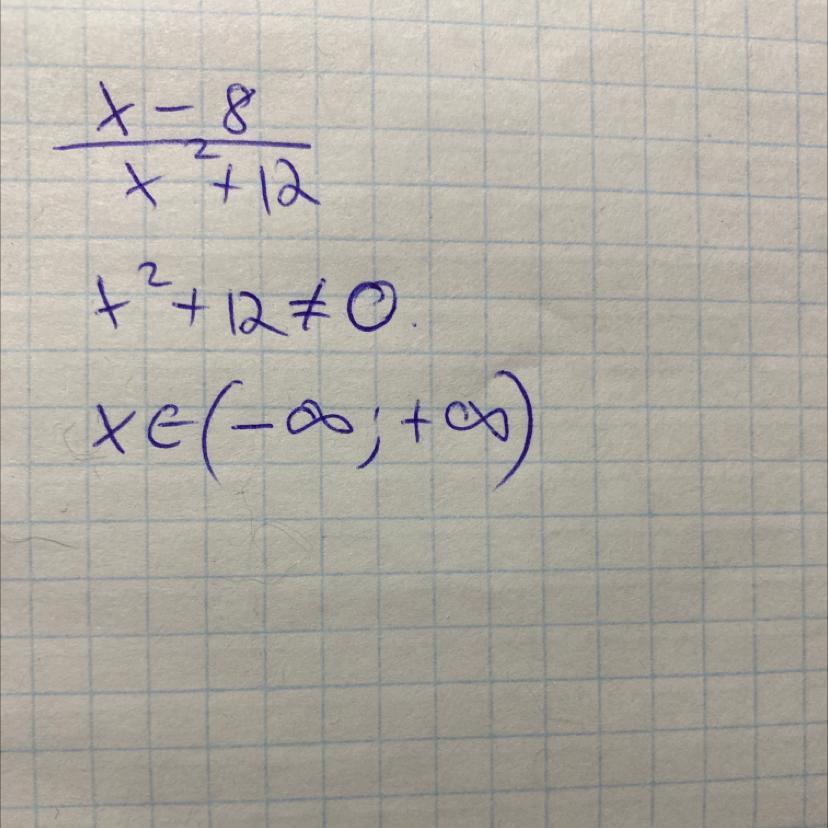 x - 8
x² + 12
x² + 12 ≠ 0.
x ∈ (-∞; +∞)